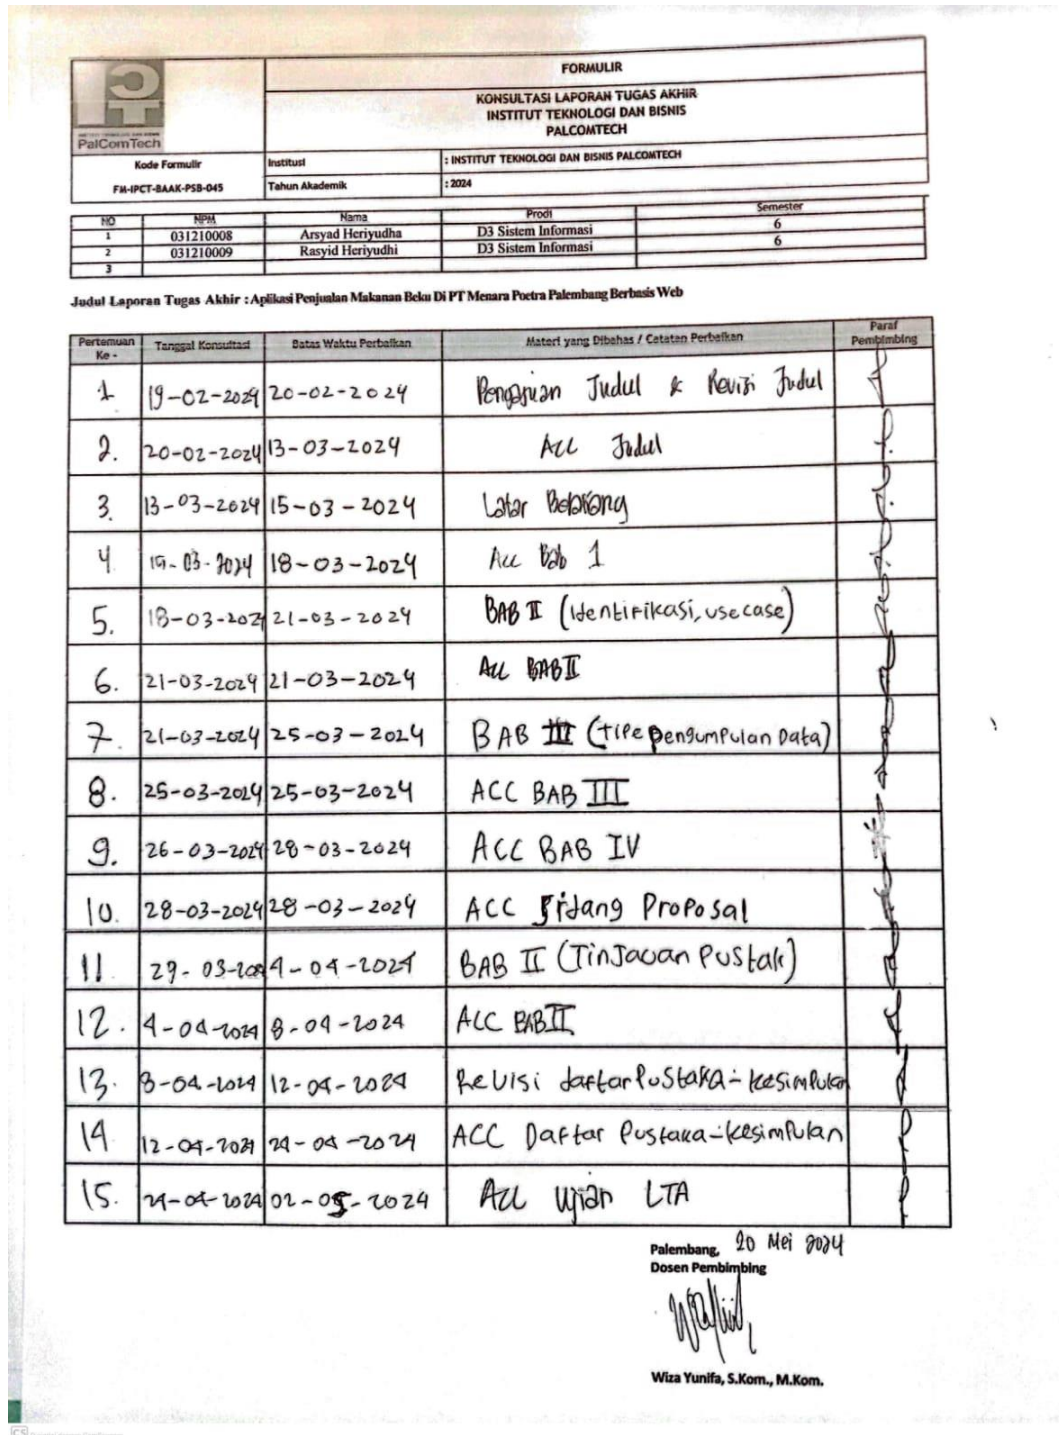 PalComTech
FORMULIR
KONSULTASI LAPORAN TUGAS AKHIR
INSTITUT TEKNOLOGI DAN BISNIS
PALCOMTECH
Kode Formulir
FM-IPCT-BAAK-PSB-045
Institusi : INSTITUT TEKNOLOGI DAN BISNIS PALCOMTECH
Tahun Akademik : 2024
NO NPM Nama Prodi Semester
1 031210008 Arsyad Heriyudha D3 Sistem Informasi 6
2 031210009 Rasyid Heriyudhi D3 Sistem Informasi 6
3
Judul Laporan Tugas Akhir : Aplikasi Penjualan Makanan Beku Di PT Menara Poetra Palembang Berbasis Web
Pertemuan Ke - Tanggal Konsultasi Batas Waktu Perbaikan Materi yang Dibahas / Catatan Perbaikan Paraf Pembimbing
1 19-02-2024 20-02-2024 Pengajuan Judul & Revisi Judul
2. 20-02-2024 13-03-2024 ACC Judul
3. 13-03-2024 15-03-2024 Latar Belakang
4 15-03-2024 18-03-2024 Acc Bab 1
5. 18-03-2024 21-03-2024 BAB II (identifikasi, usecase)
6. 21-03-2024 21-03-2024 Acc BAB II
7. 21-03-2024 25-03-2024 BAB III (Tipe Pengumpulan Data)
8. 25-03-2024 25-03-2024 ACC BAB III
9. 26-03-2024 28-03-2024 ACC BAB IV
10. 28-03-2024 28-03-2024 ACC Sidang Proposal
11. 29-03-2024 4-04-2024 BAB II (Tinjauan Pustak)
12. 4-04-2024 8-04-2024 ACC BAB II
13. 8-04-2024 12-04-2024 Revisi daftar Pustaka - kesimpulan
14 12-04-2024 24-04-2024 ACC Daftar Pustaka - kesimpulan
15. 24-04-2024 02-05-2024 Acc Ujian LTA
Palembang, 20 Mei 2024
Dosen Pembimbing
Wiza Yunifa, S.Kom., M.Kom.